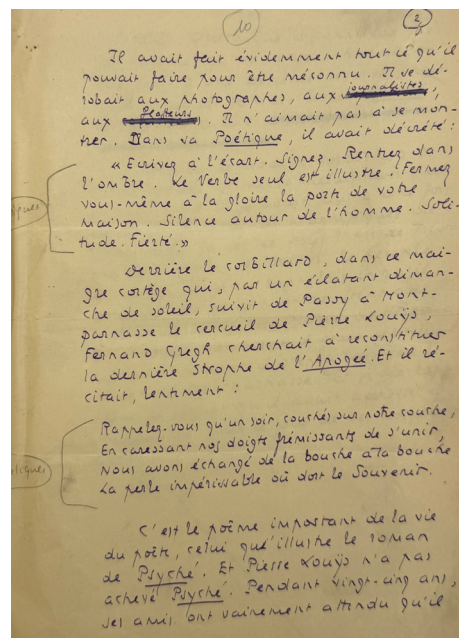 10
2
Il avait fait évidemment tout ce qu'il
pouvait faire pour être méconnu. Il se dé-
robait aux photographes, aux journalistes,
aux flatteurs. Il n'aimait pas à se mon-
trer. Dans sa Poétique, il avait décrété :
« Ecrivez à l'écart. Signez. Rentrez dans
l'ombre. Le Verbe seul est illustre. Fermez
vous-même à la gloire la porte de votre
maison. Silence autour de l'homme. Soli-
tude. Fierté. »
Derrière le corbillard, dans ce mai-
gre cortège qui, par un éclatant diman-
che de soleil, suivit de Passy à Mont-
parnasse le cercueil de Pierre Louÿs,
Fernand Gregh cherchait à reconstituer
la dernière strophe de l'Apogée. Et il ré-
citait, lentement :
Rappelez-vous qu'un soir, couchés sur notre couche,
En caressant nos doigts frémissants de s'unir,
Nous avons échangé de la bouche à la bouche
La perle impérissable où dort le Souvenir.
C'est le poème important de la vie
du poète, celui qu'illustre le roman
de Psyché. Et Pierre Louÿs n'a pas
achevé Psyché. Pendant vingt-cinq ans,
ses amis ont vainement attendu qu'il